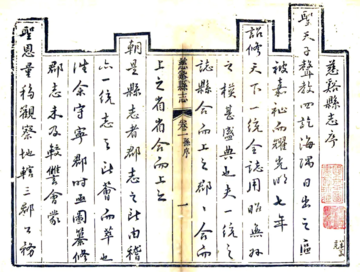 慈谿縣志序
聖天子聲教四訖海隅日出之區
被嘉祉而耀光明七年
詔修天下一統全誌用昭無外
之模甚盛典也夫一統之
誌縣合而上之郡郡合而
慈谿縣志
卷一
序
一
上之省省合而上之
朝是縣志者郡志之此由稽
六一統志之此會而萃也
往余守寧郡時亟圖纂修
郡志未及讐會蒙
聖恩量移觀察地轄三郡公務